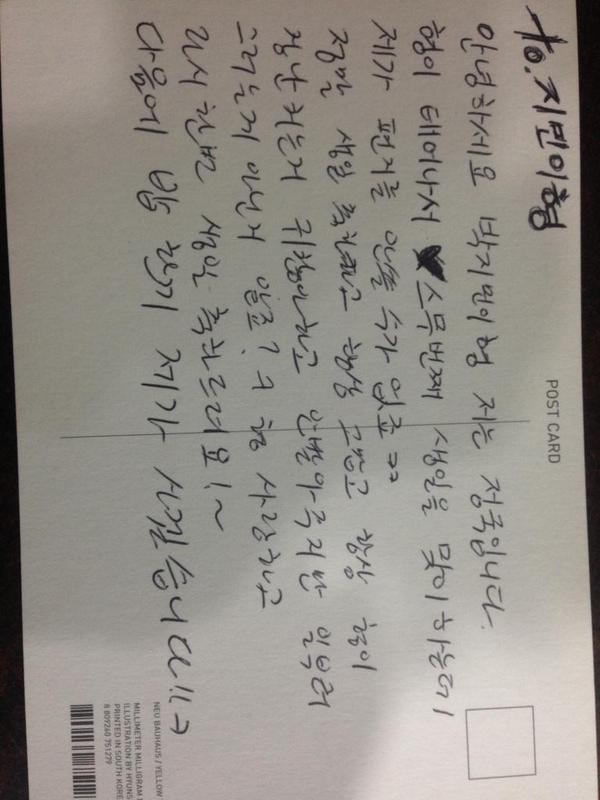 to. 지민이형
POST CARD
안녕하세요 박지민이형 저는 정국입니다.
형이 태어나서 스무번째 생일을 맞이하는데
제가 편지를 안쓸 수가 없죠 ㅋㅋ
정말 생일 축하하고 항상 고맙고 항상 형이
장난치는거 귀찮아하고 안받아주지만 일부러
그러는거 아닌거 알죠? ㅋ 형 사랑하고
다시 한번 생일 축하드려요!~
다음에 밥 한끼 제가 사겠습니다!!ㅋ
NEU BAUHAUS / YELLOW
MILLIMETER MILLIGRAM
ILLUSTRATION BY
PRINTED IN SOUTH
8 809240 751279